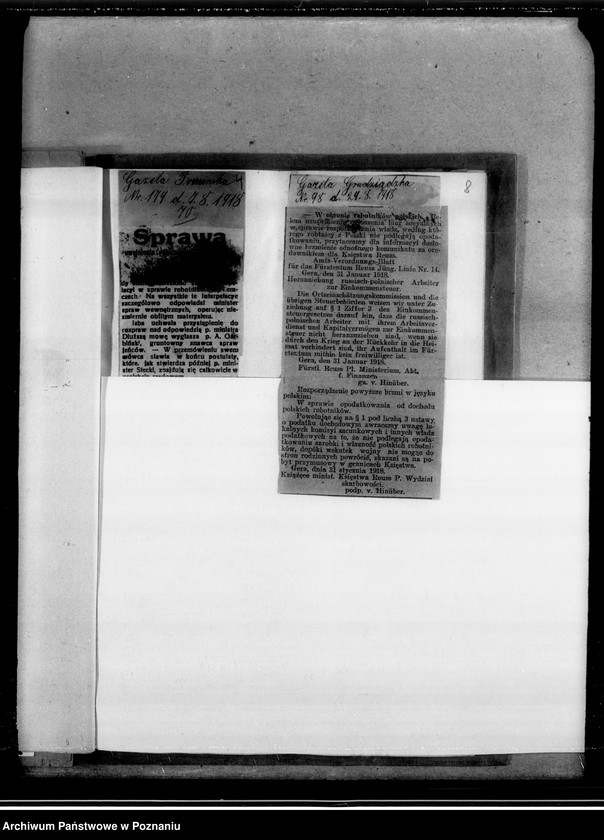 8
Gazeta
Nr. 179 d. 7.8.1918
70
Sprawa
lacyi w sprawie
czech. Na wszystkie te interpelacye
szczegółowo odpowiadał minister
spraw wewnętrznych, operując nie-
zmiernie obfitym materyałem.
Izba uchwala przystąpienie do
rozpraw nad odpowiedzią p. ministra
Dłuższą mowę wygłasza p. A.
gruntowny znawca spraw
jeńców. — W przemówieniu swem
mówca stawia w końcu postulaty,
które, jak stwierdza później p. mini-
ster Stecki, znajdują się całkowicie w
Gazeta Grudziądzka
Nr. 98 d. 29.8.1918
— W obronie robotników polskich.
w sprawie rozporządzenia władz, według któ-
rego robotnicy z Polski nie podlegają opoda-
tkowaniu, przytaczamy dla informacyi dosło-
wne brzmienie odnośnego komunikatu za orę-
downikiem dla Księstwa Reuss.
Amts-Verordnungs-Blatt
für das Fürstentum Reuss Jüng. Linie Nr. 14.
Gera, den 31 Januar 1918.
Heranziehung russisch-polnischer Arbeiter
zur Einkommensteuer.
Die Ortseinschätzungskommission und die
übrigen Steuerbehörden weisen wir unter Be-
ziehung auf § 1 Ziffer 3 des Einkommen-
steuergesetzes darauf hin, dass die russisch-
polnischen Arbeiter mit ihren Arbeitsver-
dienst und Kapitalvermögen zur Einkommen-
steuer nicht heranzuziehen sind, wenn sie
durch den Krieg an der Rückkehr in die Hei-
mat verhindert sind, ihr Aufenthalt im Für-
stentum mithin kein freiwilliger ist.
Gera, den 31 Januar 1918.
Fürstl. Reuss Pl. Ministerium, Abt.
f. Finanzen
gz. v. Hinüber.
Rozporządzenie powyższe brzmi w języku
polskim:
W sprawie opodatkowania od dochodu
polskich robotników.
Powołując się na § 1 pod liczbą 3 ustawy
o podatku dochodowym zwracamy uwagę lo-
kalnych komisyi szacunkowych i innych władz
podatkowych na to, że nie podlegają opoda-
tkowaniu zarobki i własność polskich robotni-
ków, dopóki wskutek wojny nie mogąc do
stron rodzinnych powrócić, skazani są na po-
byt przymusowy w granicach Księstwa.
Gera, dnia 31 stycznia 1918.
Książęce minist. Księstwa Reuss P. Wydział
skarbowości.
podp. v. Hinüber.
Archiwum Państwowe w Poznaniu